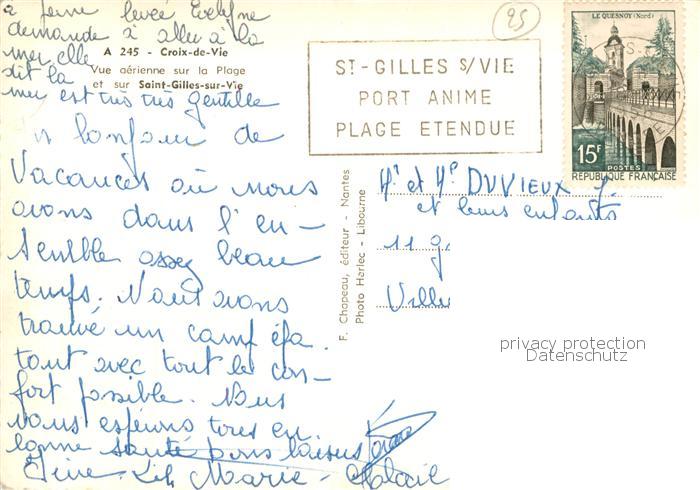 à peine levée Evelyne
demande à aller à la
mer elle
dit la
mer est très très gentille
A 245 - Croix-de-Vie
Vue aérienne sur la Plage
et sur Saint-Gilles-sur-Vie
bonjour de
Vacances où nous
avons dans l'en-
semble assez beau
temps. Nous avons
trouvé un camp épa
tant avec tout le con-
fort possible. Nous
vous espérons tous en
bonne santé bons baisers
Marie-
F. Chapeau, éditeur - Nantes
Photo Harlec - Libourne
ST-GILLES S/VIE
PORT ANIME
PLAGE ETENDUE
25
LE QUESNOY (Nord)
15F
POSTES
REPUBLIQUE FRANÇAISE
Mr et Me DUVIEUX J.
et leurs enfants
11
Ville
privacy protection
Datenschutz